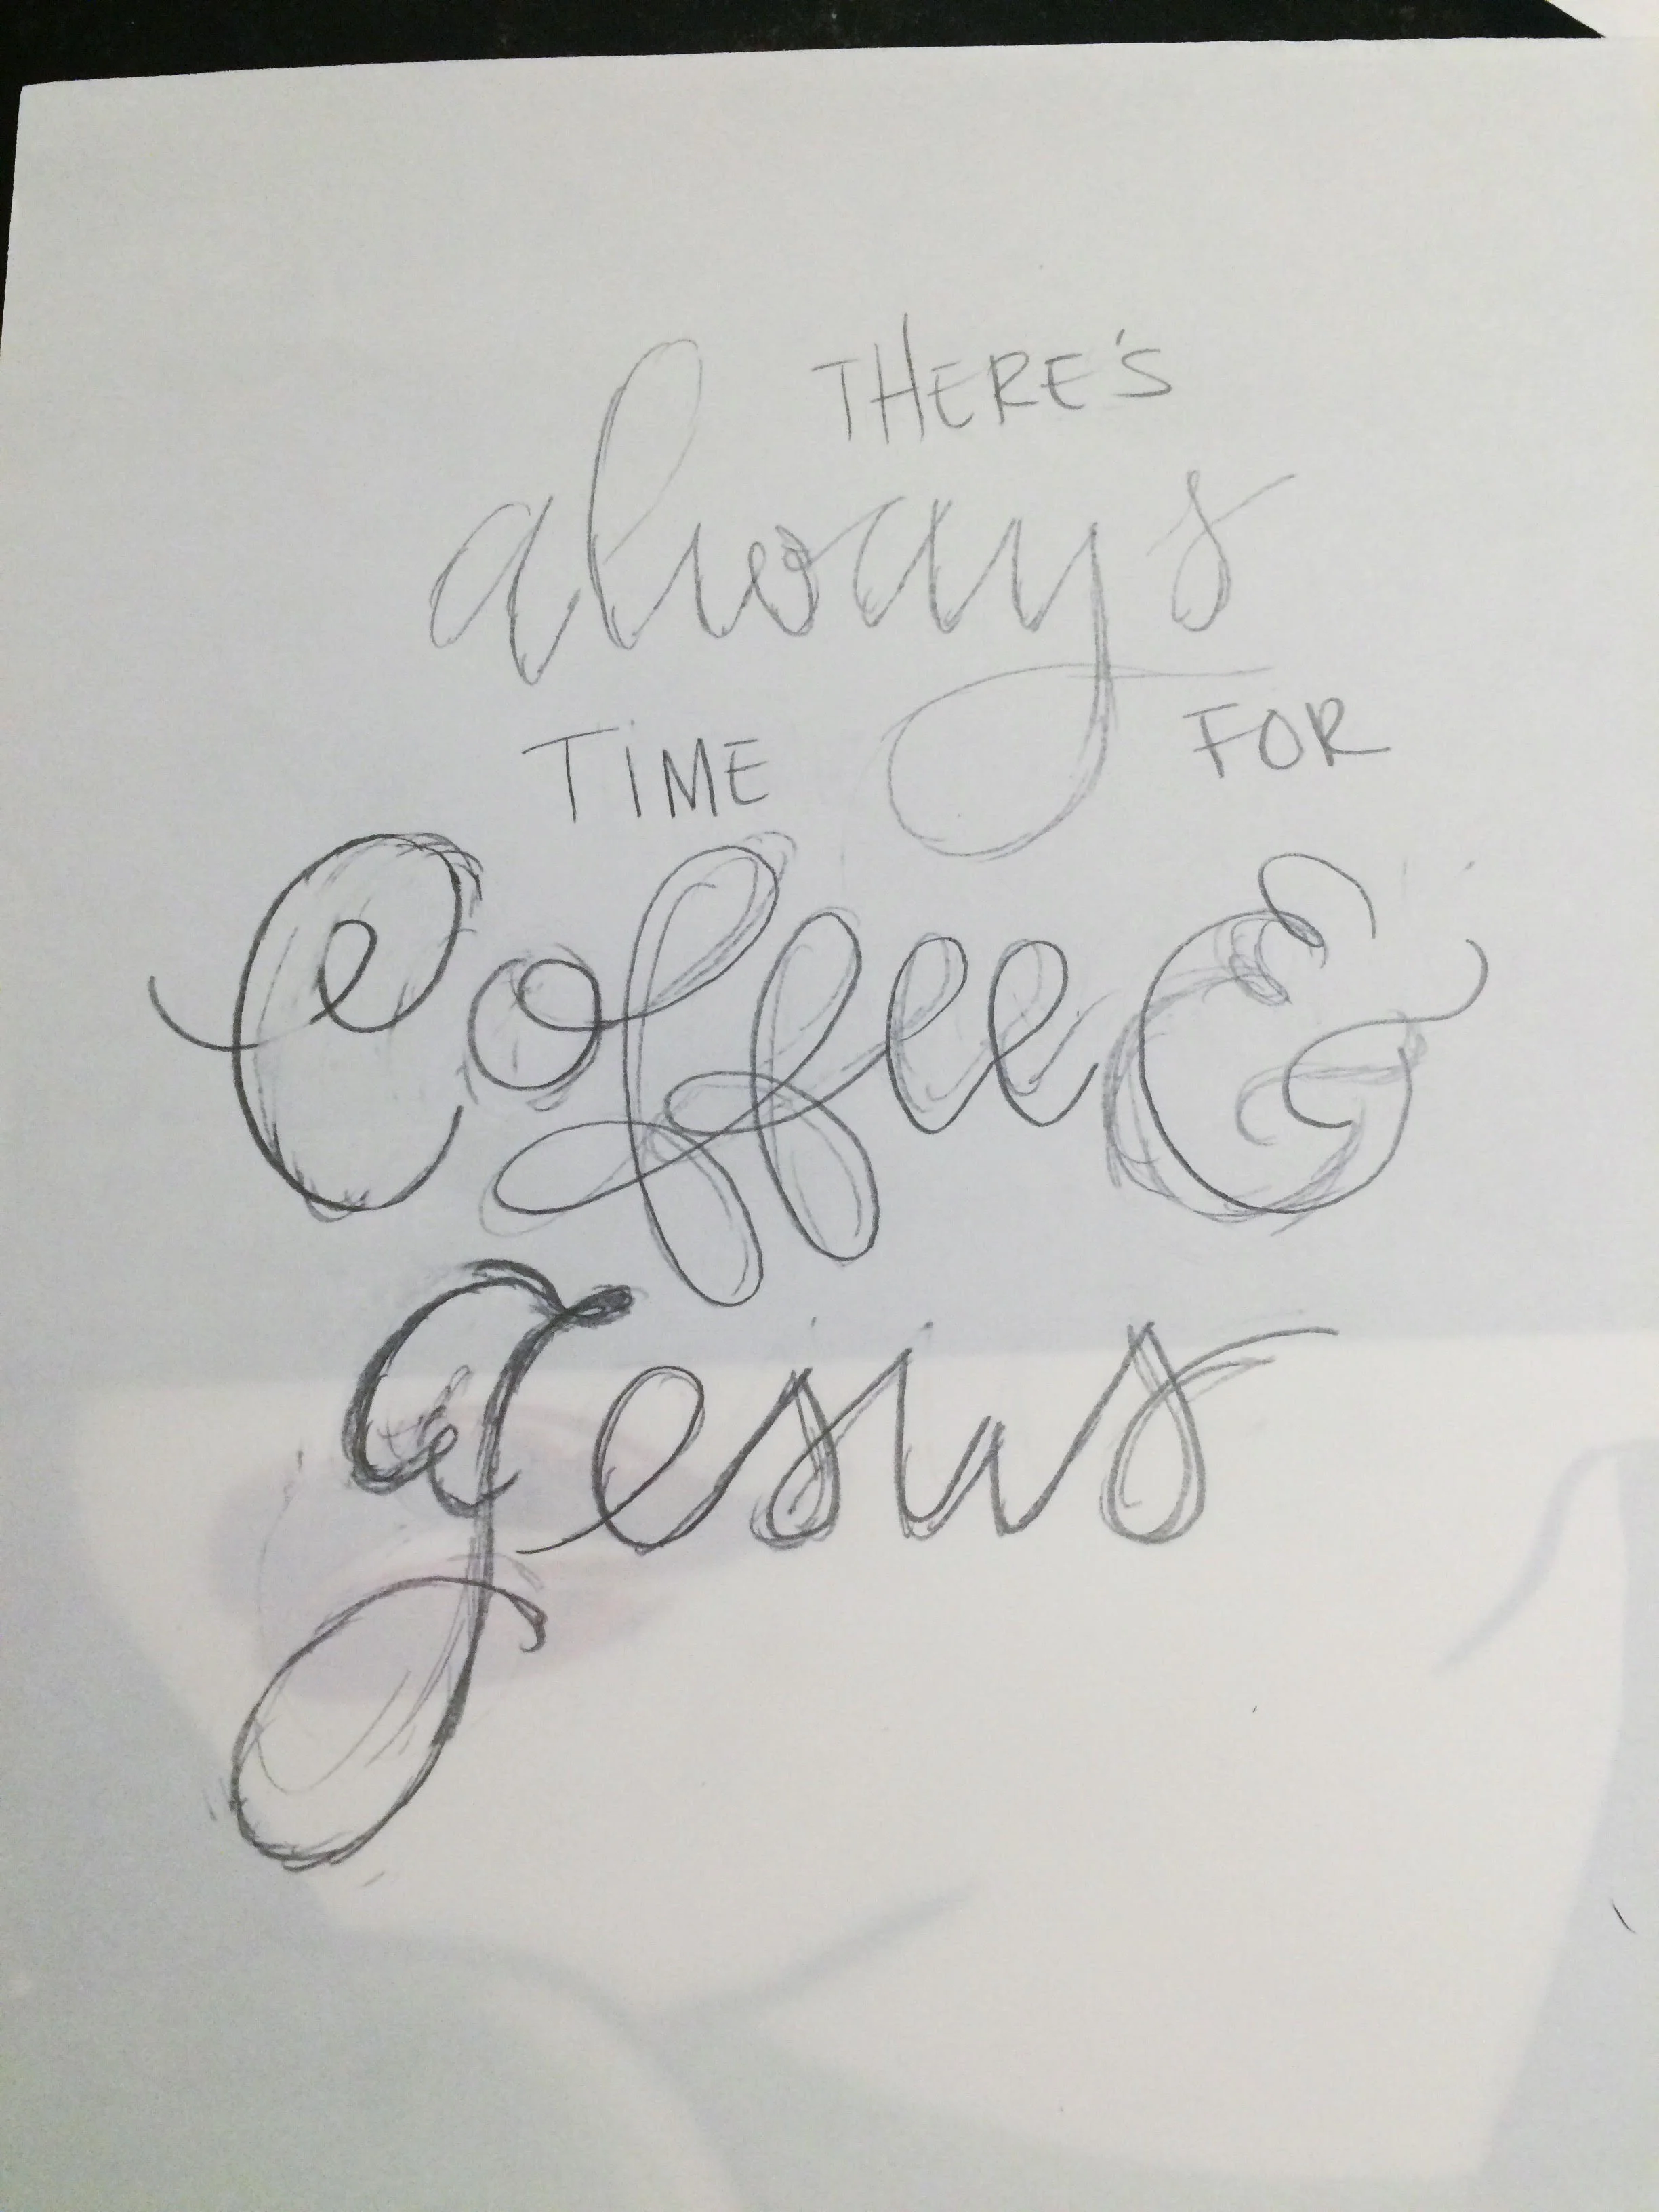 THERE'S
always
TIME FOR
Coffee &
Jesus